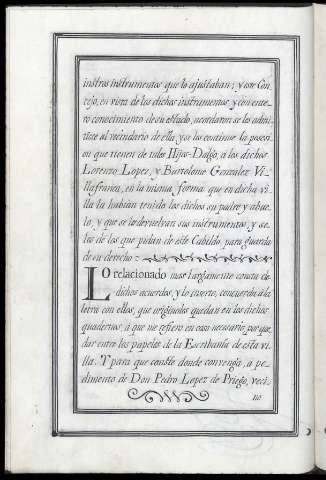 instros instrumentos que lo ajustaban; y este Con-
zejo, en vista de los dichos instrumentos, y con ente-
ro conocimiento de su estado, acordaron se les admi-
tiese al vecindario de ella, y se les continue la posesi-
on que tienen de tales Hijos-Dalgo, a los dichos
Lorenzo Lopez, y Bartolome Gonzalez Vi-
llafranca, en la misma forma que en dicha vi-
lla la habian tenido los dichos su padre y abue-
lo, y que se le devuelvan sus instrumentos y se
les de los que pidan de este Cabildo, para guarda
de su derecho:
LO relacionado mas largamente consta de
dichos acuerdos, y lo inserto, concuerda à la
letra con ellos, que originales quedan en los dichos
quadernos, à que me refiero en caso necesario por que-
dar entre los papeles de la Escribania de esta vi-
lla. Y para que conste donde convenga, à pe-
dimiento de Don Pedro Lopez de Priego, veci-
no